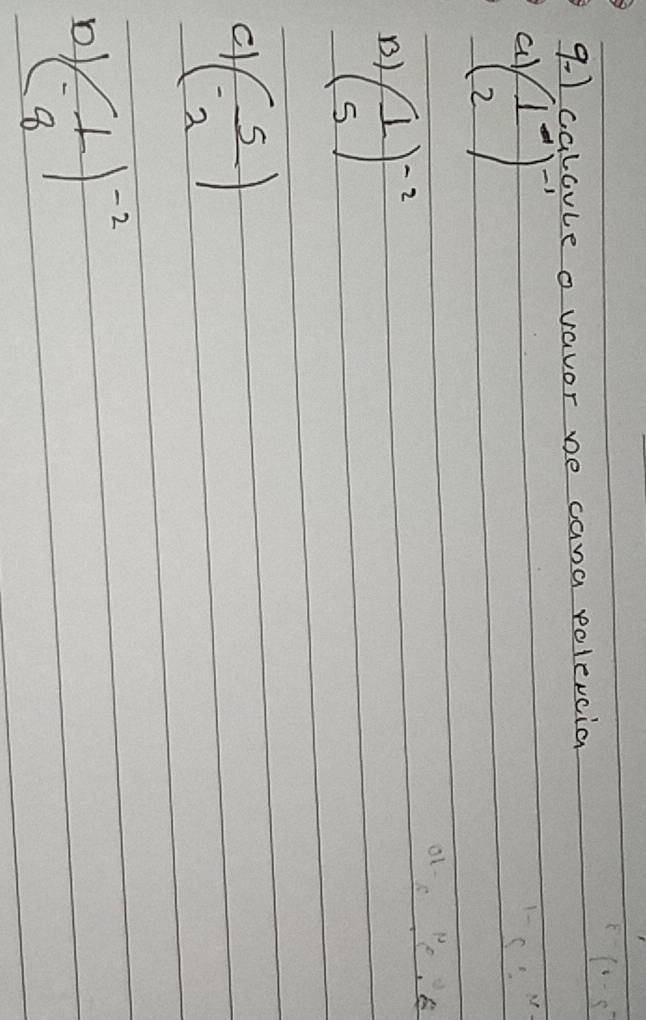 9-) calcule o valor de cada potencia
a) (1/2)^-1
B) (1/5)^-2
C) (-5/2)
D) (-1/8)^-2